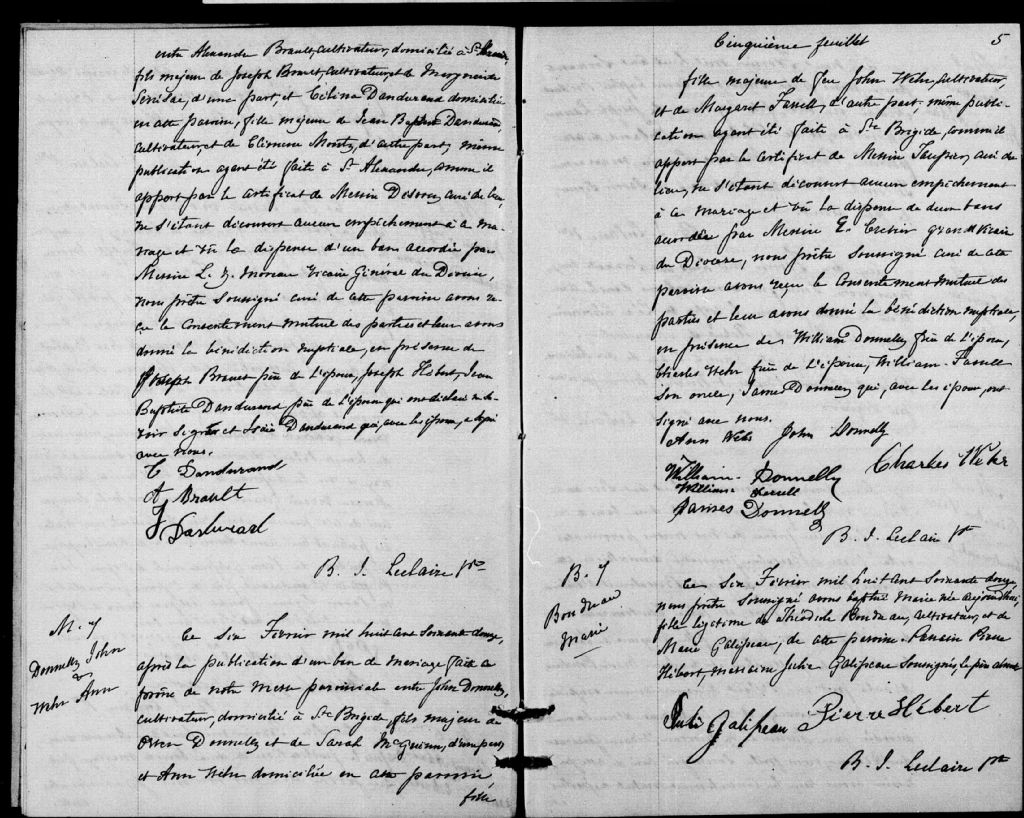 entre Alexandre Brault, cultivateur, domicilié à St
fils majeur de Joseph Brault, cultivateur, et de Marguerite
d'une part, et Célina Dandurand domiciliée
en cette paroisse, fille majeure de Jean Baptiste Dandurand,
cultivateur, et de d'autre part, même
publication ayant été faite à St Alexandre, comme il
appert par le certificat de Messire curé du lieu,
ne s'étant découvert aucun empêchement à ce ma-
riage et vû la dispense d'un ban accordée par
Messire L. Z. Moreau Vicaire Général du Diocèse,
nous prêtre soussigné curé de cette paroisse avons re-
çu le consentement mutuel des parties et leur avons
donné la bénédiction nuptiale, en présence de
Joseph Brault père de l'époux, Joseph Hébert, Jean
Baptiste Dandurand père de l'épouse qui ont déclaré ne sa-
voir signer et Dandurand qui, avec les époux, a signé
avec nous.
C Dandurand
A. Brault
B. J. Leclaire Ptre
M. 7
Donnelly John
&
Wehr Ann
Ce six Février mil huit cent soixante douze,
après la publication d'un ban de mariage faite au
prône de notre messe paroissiale entre John Donnelly,
cultivateur, domicilié à Ste Brigide, fils majeur de
Owen Donnelly et de Sarah McGuinn, d'une part,
et Ann Wehr domiciliée en cette paroisse
fille
Cinquième feuillet
5
fille majeure de feu John Wehr, cultivateur,
et de Margaret Farrell, d'autre part, même publi-
cation ayant été faite à Ste Brigide, comme il
appert par le certificat de Messire curé du
lieu, ne s'étant découvert aucun empêchement
à ce mariage et vû la dispense de deux bans
accordée par Messire E. Crevier grand Vicaire
du Diocèse, nous prêtre soussigné curé de cette
paroisse avons reçu le consentement mutuel des
parties et leur avons donné la bénédiction nuptiale,
en présence de William Donnelly frère de l'époux,
Charles Wehr frère de l'épouse, William Farrell
son oncle, James Donnelly qui, avec les époux, ont
signé avec nous.
Ann Wehr John Donnelly
Charles Wehr
William Donnelly
William Farrell
James Donnelly
B. J. Leclaire Ptr
B. 7
Boudreau
Marie
Ce six Février mil huit cent soixante douze,
nous prêtre soussigné avons baptisé Marie née aujourd'hui,
fille légitime de Théodule Boudreau, cultivateur, et de
Marie Galipeau, de cette paroisse. Parrain Pierre
Hébert, marraine Julie Galipeau soussignés, le père absent
Julie Galipeau Pierre Hébert
B. J. Leclaire Ptre